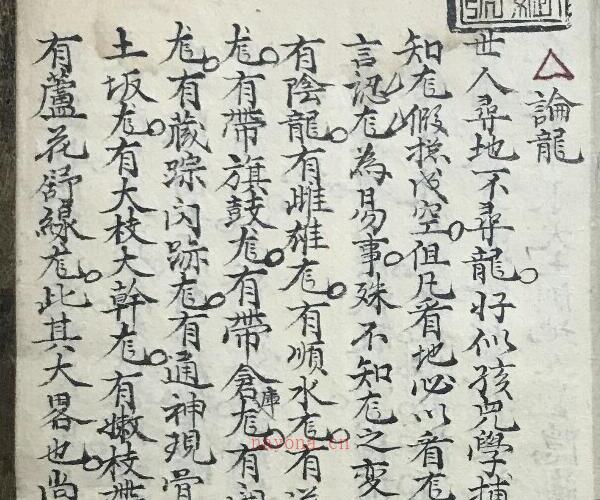 論龍
世人尋地不尋龍好似孩兒學捕
知龙假摸成空但凡看地必以看龙
言認龙為易事殊不知龙之变
有陰龍有雌雄龙有順水龙有
龙有带旗鼓龙有带倉庫龙有
龙有藏踪闪跡龙有通神現骨
土坂龙有大枝大幹龙有嫩枝
有蘆花舒線龙此其大畧也尚
nayona.cn